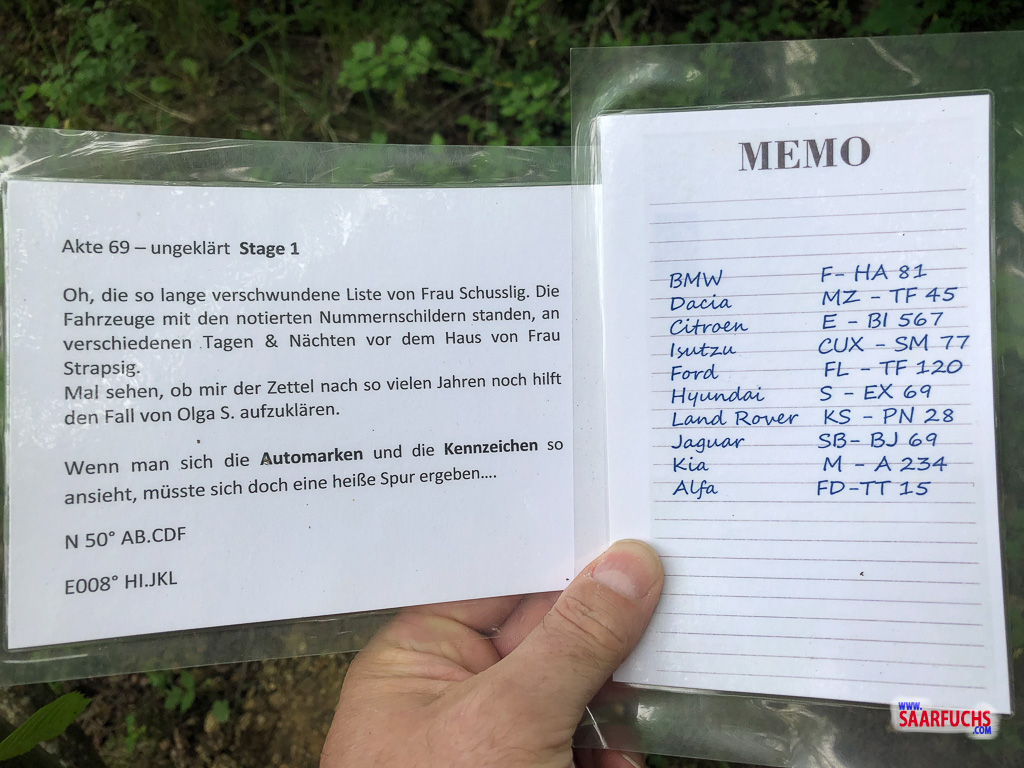 Akte 69 – ungeklärt Stage 1
Oh, die so lange verschwundene Liste von Frau Schusslig. Die
Fahrzeuge mit den notierten Nummernschildern standen, an
verschiedenen Tagen & Nächten vor dem Haus von Frau
Strapsig.
Mal sehen, ob mir der Zettel nach so vielen Jahren noch hilft
den Fall von Olga S. aufzuklären.
Wenn man sich die Automarken und die Kennzeichen so
ansieht, müsste sich doch eine heiße Spur ergeben....
N 50° AB.CDF
E008° HI.JKL
MEMO
BMW F- HA 81
Dacia MZ - TF 45
Citroen E - BI 567
Isutzu CUX - SM 77
Ford FL - TF 120
Hyundai S - EX 69
Land Rover KS - PN 28
Jaguar SB- BJ 69
Kia M - A 234
Alfa FD-TT 15
WWW.
SAARFUCHS
.COM